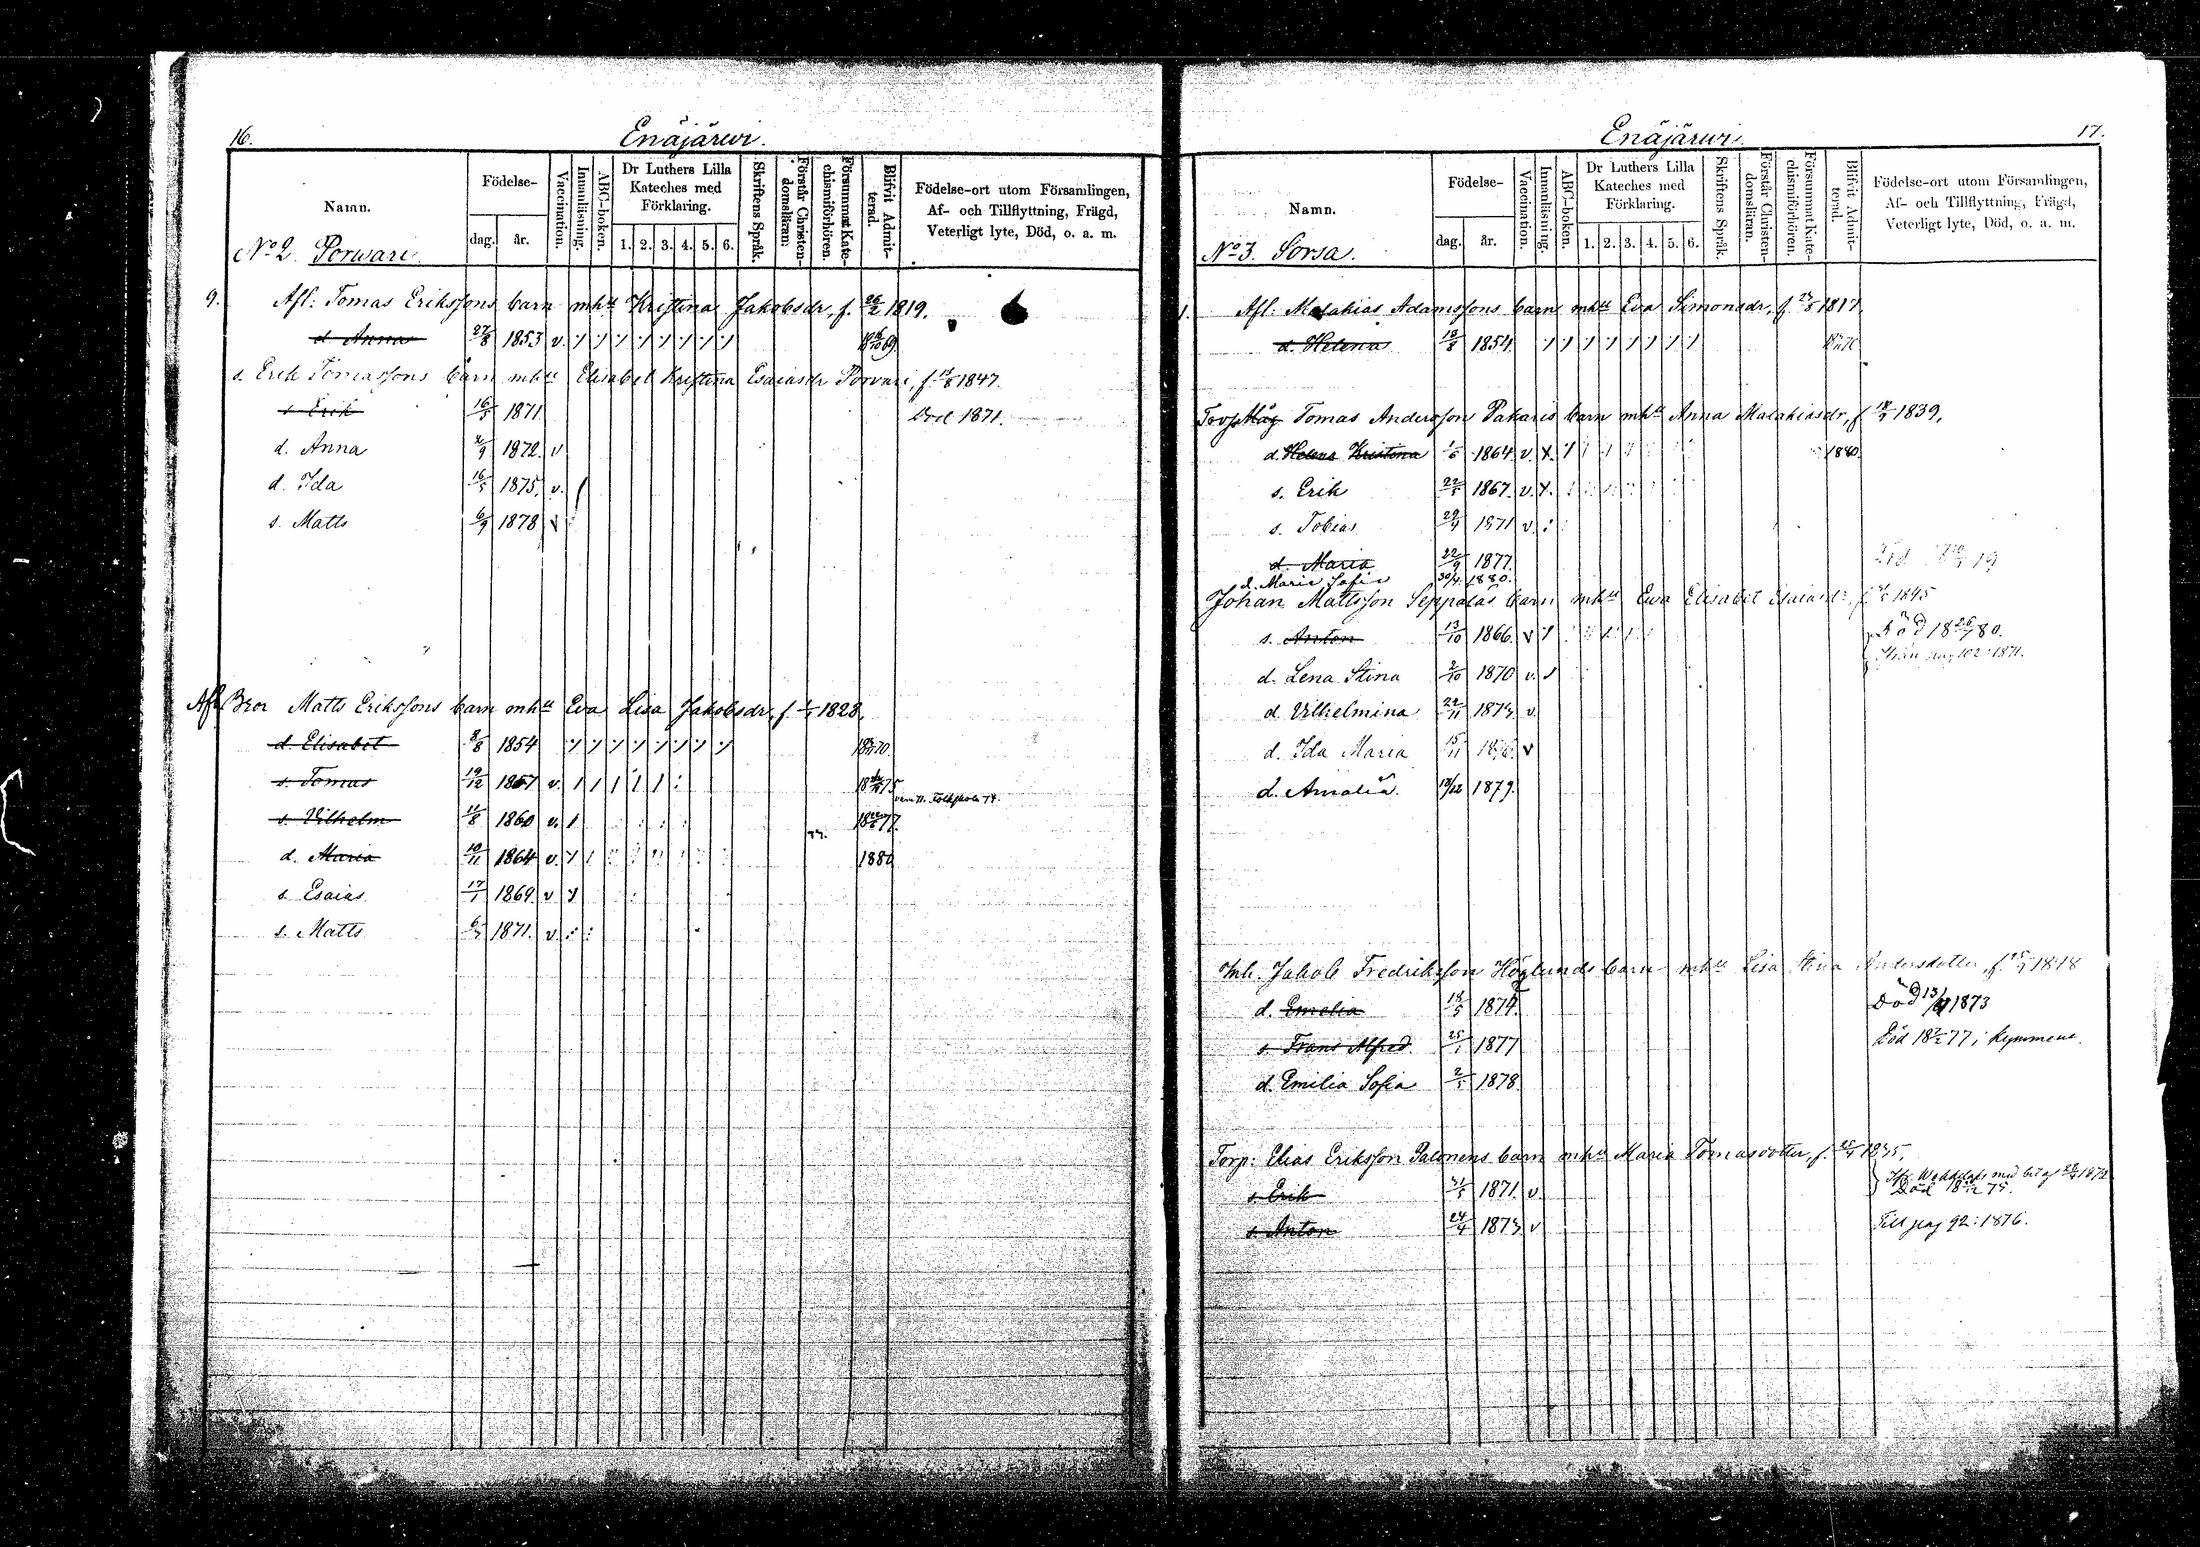 16.
Enäjärwi.
Namn.
Födelse-
dag.
år.
Vaccination.
Innanläsning.
ABC-boken.
Dr Luthers Lilla
Kateches med
Förklaring.
1. 2. 3. 4. 5. 6.
Skriftens Språk.
Förstår Christen-
domsläran.
Försummat Kate-
chismiförhören.
Blifvit Admit-
terad.
Födelse-ort utom Församlingen,
Af- och Tillflyttning, Frägd,
Veterligt lyte, Död, o. a. m.
No 2. Porwari
9. Afl: Tomas Erikssons barn mhu Kristina Jakobsdr, f. 26/2 1819.
d. Anna 27/8 1853 v.
s. Erik Tomassons barn mhu Elisabet Kristina Esaiasdr Porvari, f. 1847.
s. Erik 16/5 1871 Död 1871.
d. Anna 2/9 1872 v
d. Ida 16/5 1875. v.
s. Matts 6/9 1878 v
Afl. Bror Matts Erikssons barn mhu Eva Lisa Jakobsdr, f. 1828,
d. Elisabet 8/8 1854
s. Tomas 19/12 1857 v.
s. Vilhelm 11/8 1860 v.
d. Maria 10/11 1864 v. 1880
s. Esaias 17/1 1869 v
s. Matts 1871. v.
17.
Enäjärwi.
Namn.
Födelse-
dag.
år.
Vaccination.
Innanläsning.
ABC-boken.
Dr Luthers Lilla
Kateches med
Förklaring.
1. 2. 3. 4. 5. 6.
Skriftens Språk.
Förstår Christen-
domsläran.
Försummat Kate-
chismiförhören.
Blifvit Admit-
terad.
Födelse-ort utom Församlingen,
Af- och Tillflyttning, Frägd,
Veterligt lyte, Död, o. a. m.
No 3. Sorsa.
1. Afl: Malakias Adamssons barn mhu Eva Simonsdr, f. 1817.
d. Helena 18/8 1854
Måg Tomas Andersson Pakaris barn mhu Anna Malakiasdr, f 1839,
d. Helena Kristina 1/6 1864 v. 1880.
s. Erik 22/5 1867. v.
s. Tobias 29/4 1871 v.
d. Maria 22/9 1877.
d. Maria Sofia 30/4. 1880.
Johan Mattsson Seppäläs barn mhu Ewa Elisabet Esaiasdr, f 1845
s. Anton 13/10 1866. v Död 80.
d. Lena Stina 2/10 1870 v. Från pag 102: 1871.
d. Vilhelmina 22/11 1873 v.
d. Ida Maria 15/11 1876. v
d. Amalia. 1879.
Inh. Jakob Fredriksson Höglunds barn mhu Lisa Stina Andersdotter, f. 1848
d. Emelia 18/5 1874. Död 1873
s. Frans Alfred 25/1 1877 Död 18 77 i Kymmene.
d. Emilia Sofia 2/5 1878.
Torp: Elias Eriksson Palonens barn mhu Maria Tomasdotter, f. 1835,
s. Erik 31/5 1871. v Död 18 75.
s. Anton 24/4 1873 v Till pag 92: 1876.